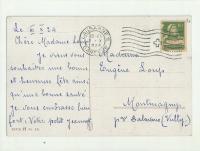 Le III X 24
Chère Madame
Je vous
souhaite une bonne
et heureuse fête ainsi
qu'une bonne santé
je vous embrasse bien
fort. Votre petit
Madame
Eugène Loup
Montmagny
p/r Salavaux (Vully)